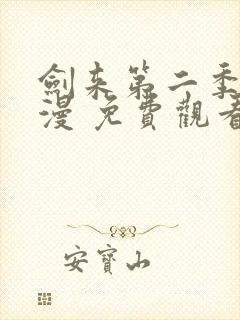 劍来第二季
漫 免費觀看
安寶山